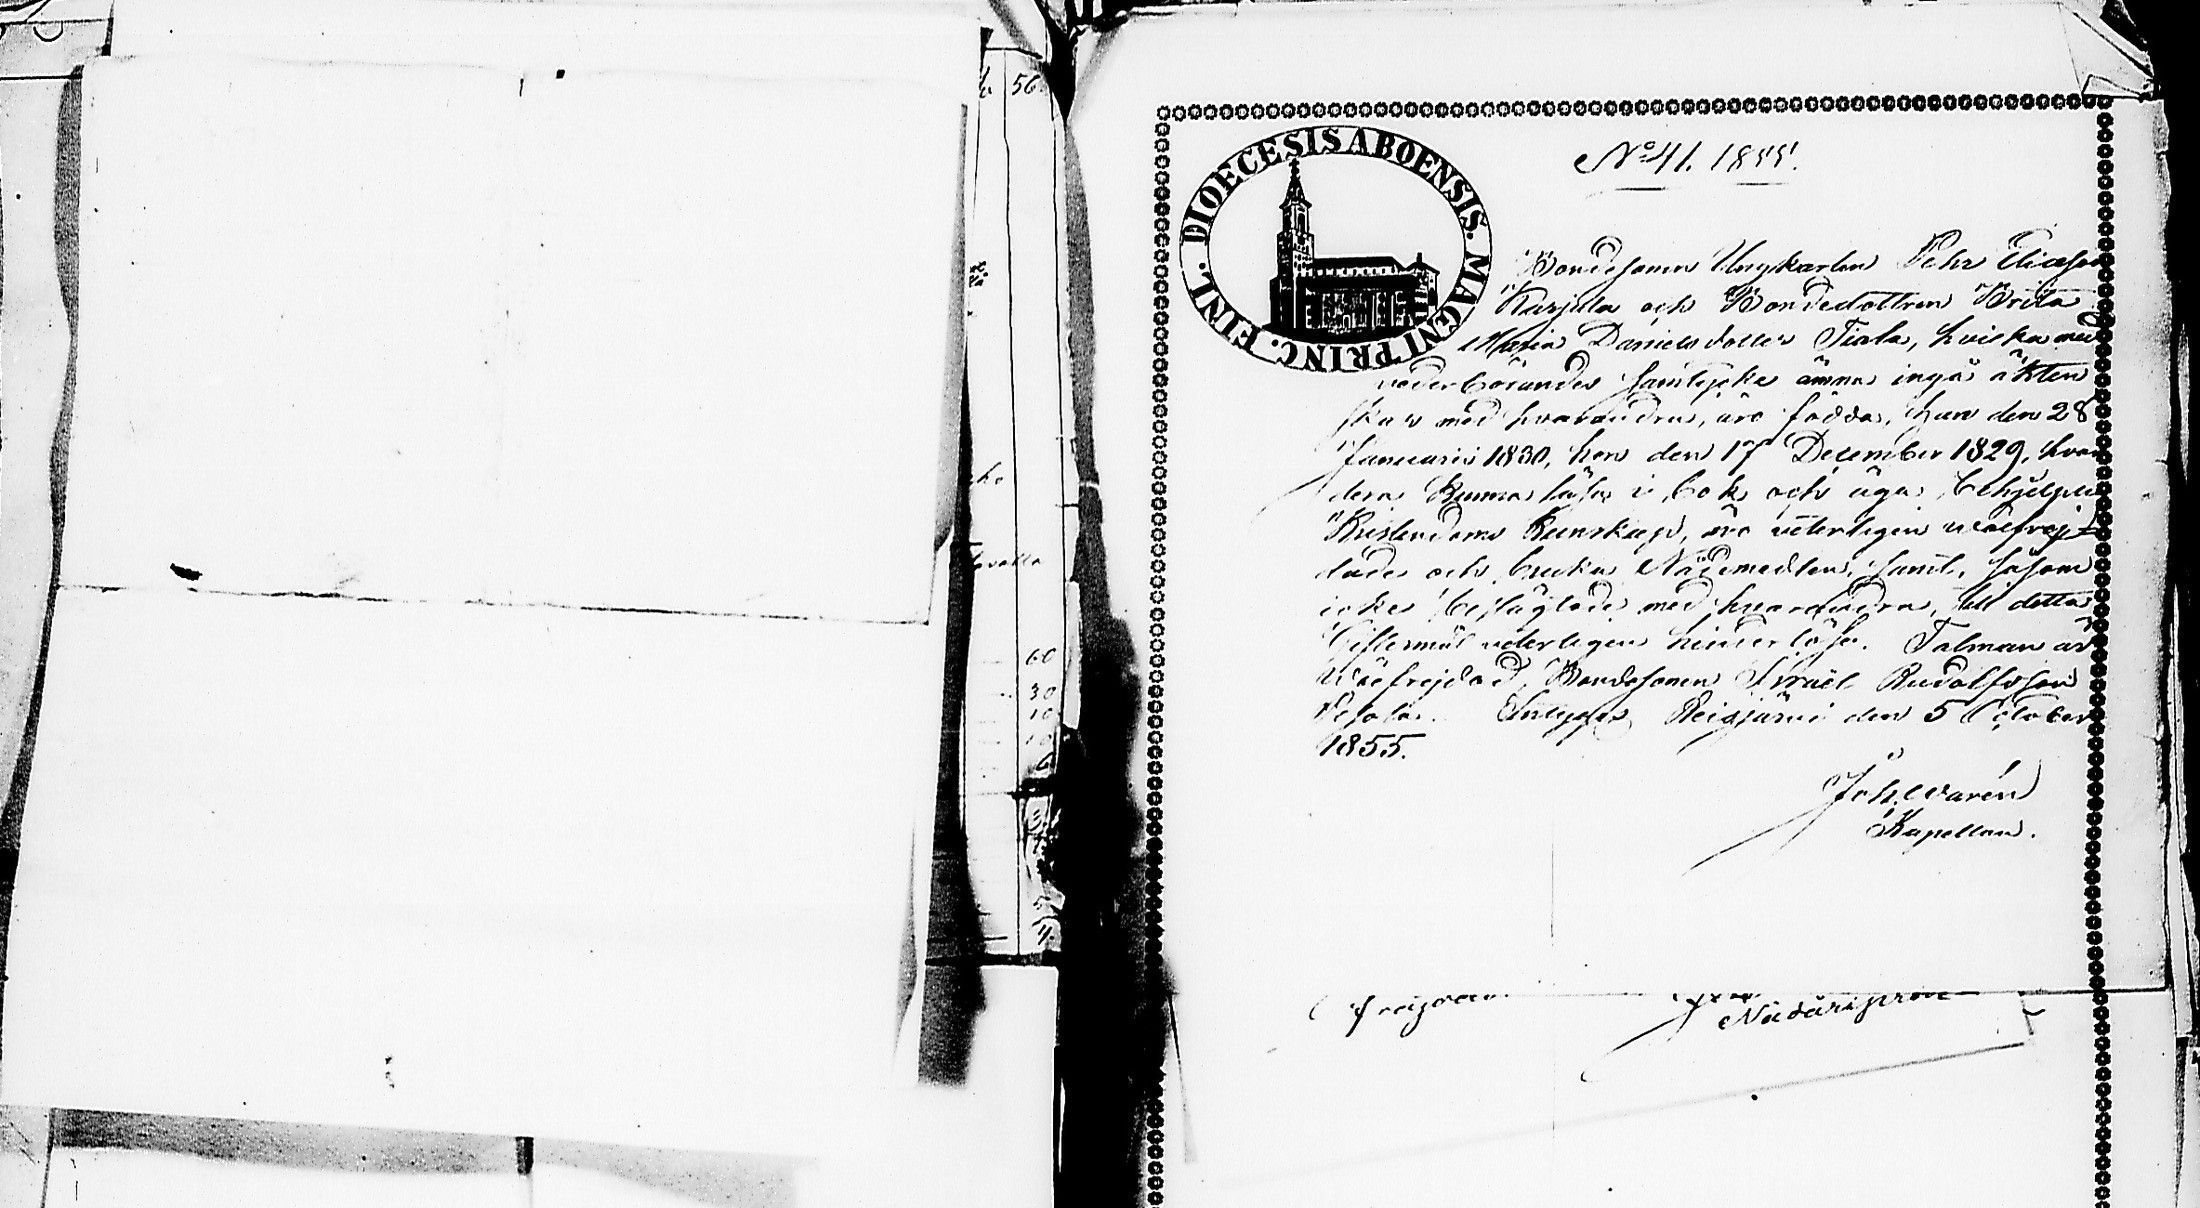 56
60
30
10
10
DIOECESIS ABOENSIS. MAGNI PRINC. FINL.
No 41. 1855.
Bondesonen Ungkarlen Pehr Eliasson
Kurjula och Bondedottren Brita
Maria Danielsdotter Tiala, hvilka med
vederbörandes samtycke ämna ingå äkten
skap med hvarandra, äro födda, han den 28
Januarii 1830, hon den 17 December 1829, hvar
dera kunna läsa i bok och äga behjelplig
Kristendoms Kunskap, äro veterligen wälfrej-
dade och bruka Nådemedlen, samt, såsom
icke beslägtade med hvarandra, till detta
Giftermål veterligen hinderlösa. Talman är
Wälfrejdad Bondesonen Israël Rudolfsson
Vesola. Intygar, Reisjärvi den 5 October
1855.
Joh. Warén
Kapellan.